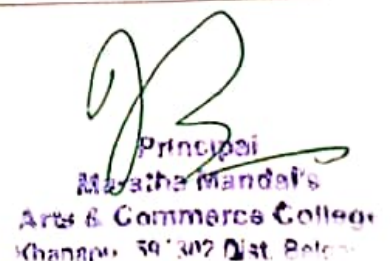 Principal
Maratha Mandal's
Arts & Commerce College
Khanapu 591302 Dist. Belga